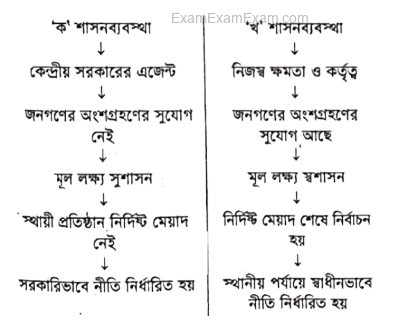 ExamExamExam.com
'ক' শাসনব্যবস্থা
↓
কেন্দ্রীয় সরকারের এজেন্ট
↓
জনগণের অংশগ্রহণের সুযোগ
নেই
↓
মূল লক্ষ্য সুশাসন
↓
স্থায়ী প্রতিষ্ঠান নির্দিষ্ট মেয়াদ
নেই
↓
সরকারিভাবে নীতি নির্ধারিত হয়
'খ' শাসনব্যবস্থা
↓
নিজস্ব ক্ষমতা ও কর্তৃত্ব
↓
জনগণের অংশগ্রহণের
সুযোগ আছে
↓
মূল লক্ষ্য স্বশাসন
↓
নির্দিষ্ট মেয়াদ শেষে নির্বাচন
হয়
↓
স্থানীয় পর্যায়ে স্বাধীনভাবে
নীতি নির্ধারিত হয়